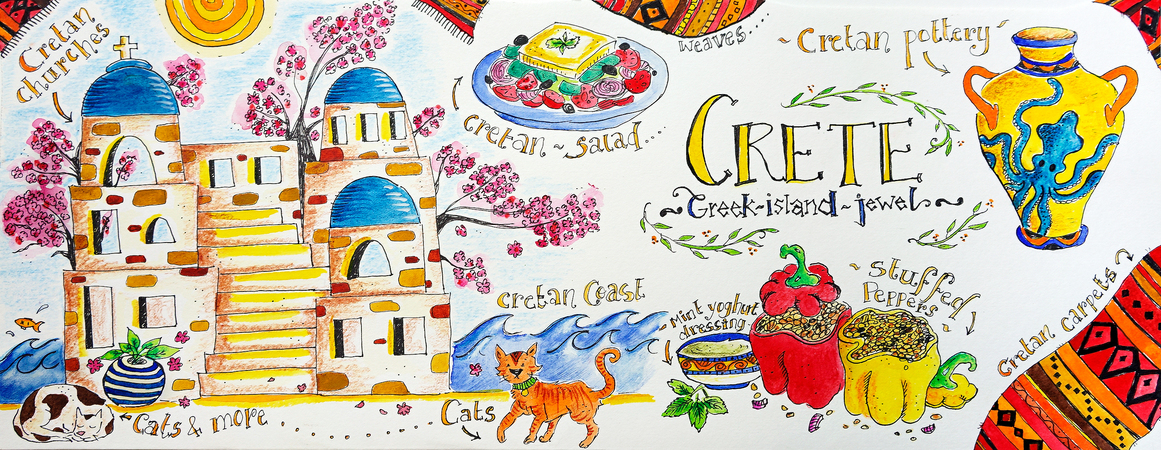 Cretan
churches
weaves.
~Cretan pottery~
cretan~salad...
CRETE
~Greek-island~jewel~
cretan Coast
Mint yoghut
dressing
~stuffed
Peppers~
Cretan carpets
Cats & more ...........
Cats